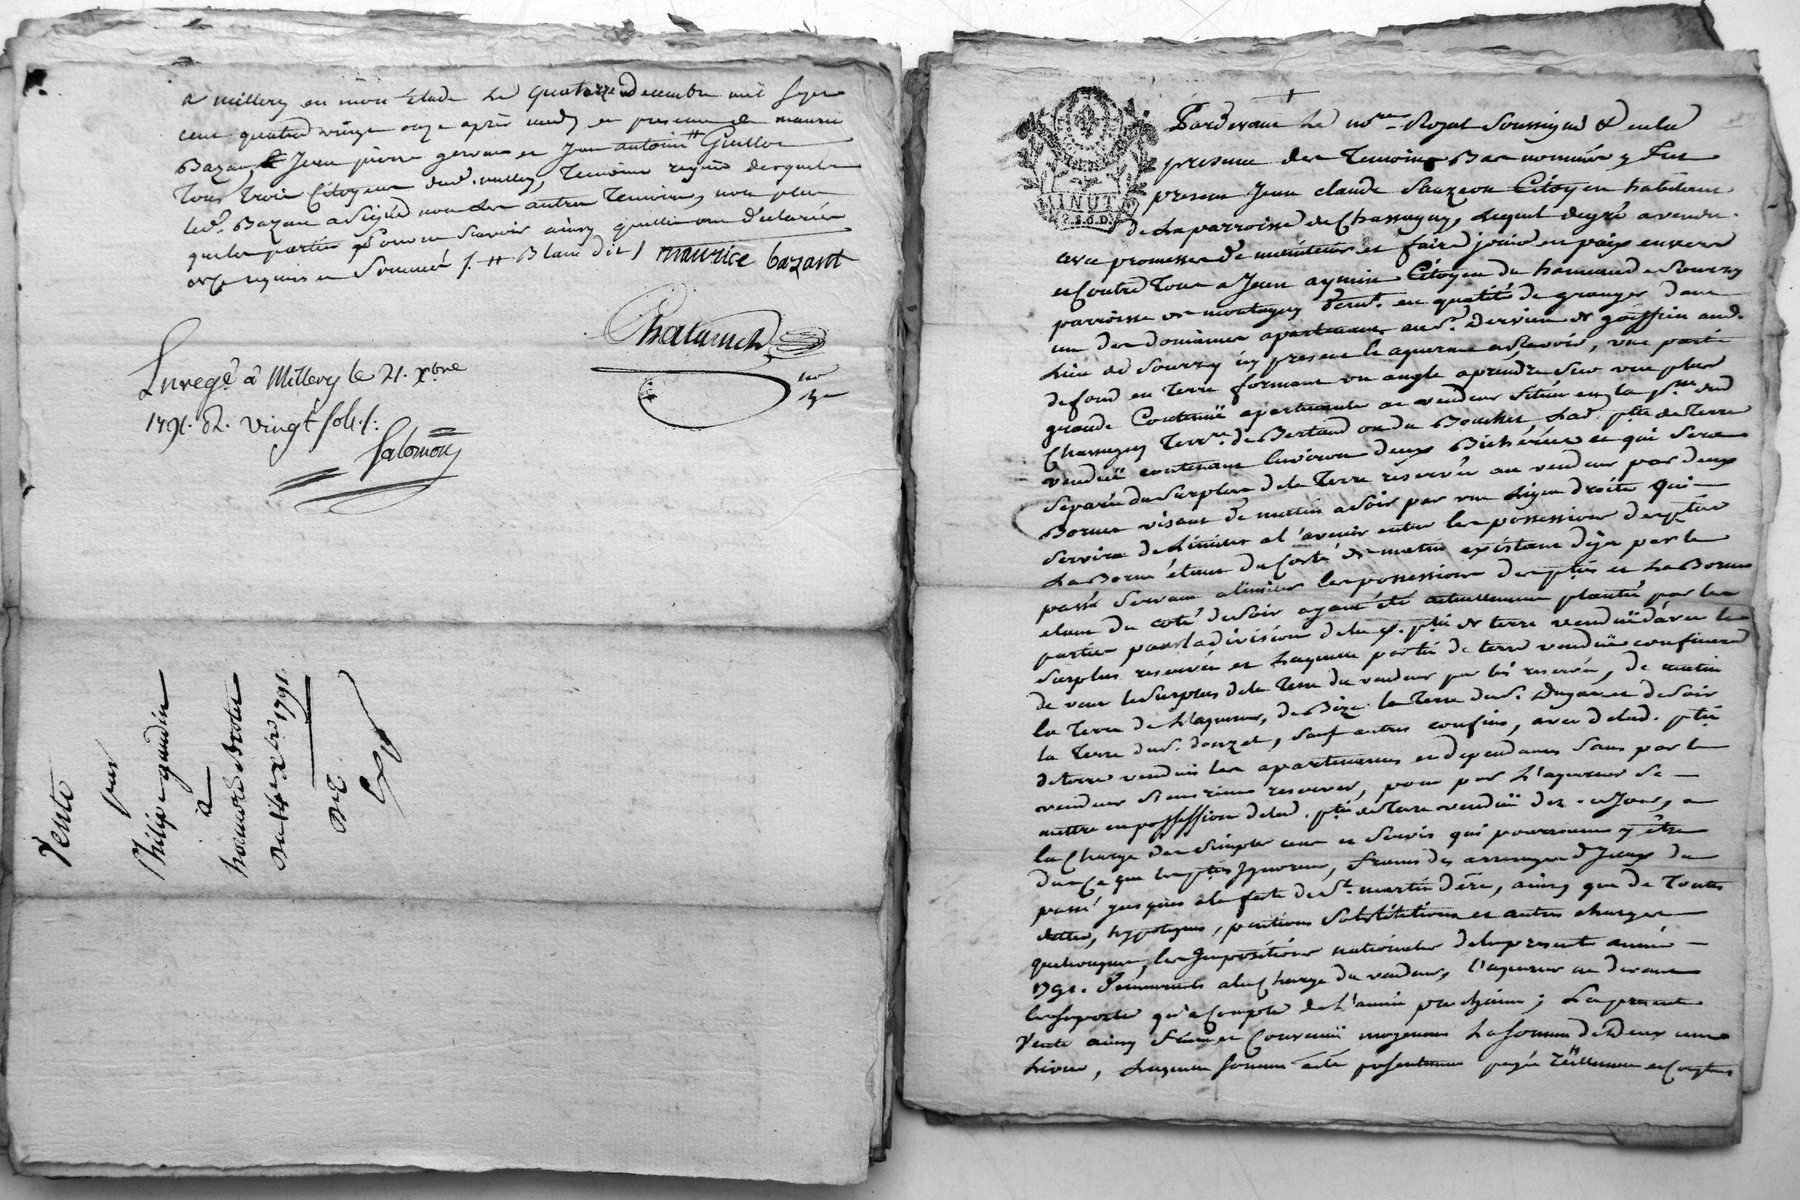 a millery en mon Etude Le quatorze Decembre mil sept
cent quatre vingt onze après midy en presence de maurice
Bazan, Jean pierre gervais et Jean antoine # Guillot
Tous trois Citoyens dud. millery Temoins requis desquels
led. Bazan a signé non Les autres Temoins, non plus
que les parties pour ne Scavoir ainsy quelles ont declarées
de ce requis et Sommés ./. # Blanc dit / maurice bazant
Chalumel
nore
Enregé. à Millery le 21. Xbre
1791. R. vingt sols ./.
Salomon
Vente
par
Philipe gaudin
à
Du 14 Xbre 1791.
Pardevant Le nore Royal Soussigné & en la
presence des Temoins Bas nommés y Fut
present Jean claude Sauzeon Citoyen habitant
de La parroisse de Chassagny, Lequel degré a vendu
avec promesse de maintenir et faire jouir en paix envers
et Contre Tous a Jean aymin Citoyen du hameau de Sourzy
parroisse de montagny demt. en qualité de granger dans
un des domaines apartenant au Sr. Dervieu de goiffieu aud.
Lieu de Sourzy icy present & aquereur a Scavoir, une partie
de fond en Terre formant un angle a prendre Sur une plus
grande Contenue apartenante au vendeur Située en la psse. dud
Chassagny Terre. de Bertaud ou du Bouchet, Lad. ptie de Terre
vendüe contenant Environ deux Bicherées et qui Sera
Separée du Surplus de la Terre reservée au vendeur par deux
Bornes visant de matin a Soir par une Ligne droite qui
Servira de Limites a l'avenir entre les possessions des pties
La Borne étant du Costé de matin existant déja par le
passé Servant a limiter les possessions des pties et La Borne
etant du coté de Soir ayant été actuellement plantée par les
parties pour la division de lad. ptie de terre vendüe d'avec le
Surplus reservée et Laquelle partie de terre vendüe confine
de vent le Surplus de la Terre du vendeur par lui reservée, de matin
la Terre de L'aquereur, de Bize la Terre du Sr. Dugas et de Soir
la Terre du Sr. donzel, Sauf autres confins, avec de lad. ptie
de terre vendüe les apartenances et dependances Sans par le
vendeur S'en rien reserver, pour par L'aquereur Se
mettre en possession de lad. ptie de Terre vendüe dez ce Jour, a
la Charge des Simples cens et Servis qui pourroient y être
dus Ce que les pties Ignorent, francs des arrerages d'Iceux du
passé jusques a la fete de St. martin d'ére, ainsy que de Toutes
dettes, hypoteques, pentions Substitutions et autres charges
quelconques, les Impositions nationales de la presente année
1791. demeurants a la Charge du vendeur, l'aquereur ne devant
les suporter qu'a Compter de L'année prochaine; La presente
Vente ainsy faite et Convenüe moyenant La Somme de Deux cent
Livres, Laquelle Somme a été presentement payée réellement et Comptant